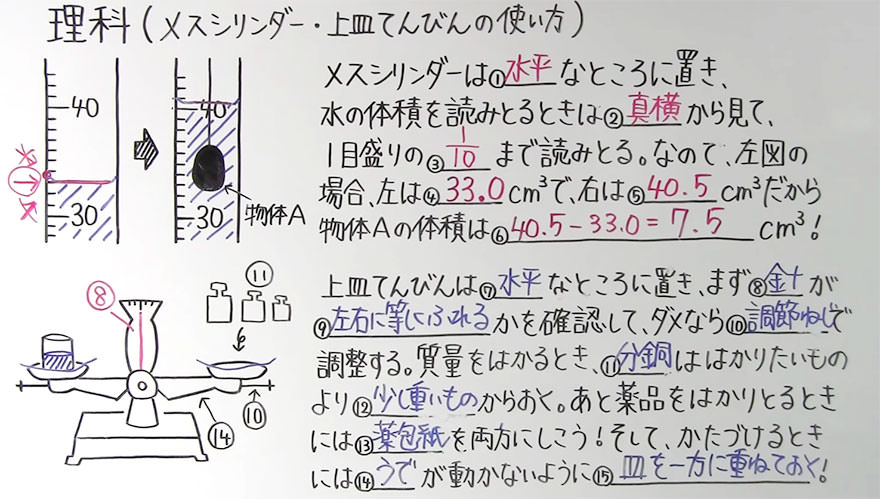 理科(メスシリンダー・上皿てんびんの使い方)
40
30
40
30
物体A
メスシリンダーは①水平なところに置き、
水の体積を読みとるときは②真横から見て、
1目盛りの③1/10まで読みとる。なので、左図の
場合、左は④33.0cm³で、右は⑤40.5cm³だから
物体Aの体積は⑥40.5-33.0=7.5cm³!
⑧
⑪
⑩
⑭
上皿てんびんは⑦水平なところに置き、まず⑧針が
⑨左右に等しくふれるかを確認して、ダメなら⑩調節ねじで
調整する。質量をはかるとき、⑪分銅ははかりたいもの
より⑫少し重いものからおく。あと薬品をはかりとるとき
には⑬薬包紙を両方にしこう!そして、かたづけるとき
には⑭うでが動かないように⑮皿を一方に重ねておく!